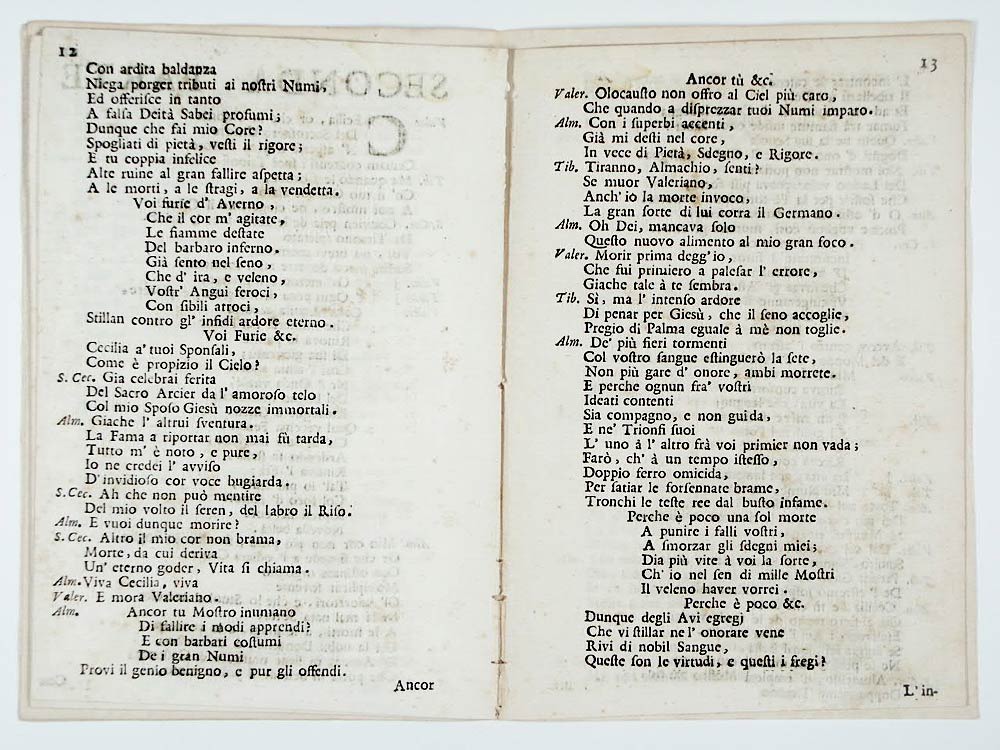 12
Con ardita baldanza
Niega porger tributi ai nostri Numi,
Ed offerisce in tanto
A falsa Deità Sabei profumi;
Dunque che fai mio Core?
Spogliati di pietà, vesti il rigore;
E tu coppia infelice
Alte ruine al gran fallire aspetta;
A le morti, a le stragi, a la vendetta.
Voi furie d' Averno,
Che il cor m' agitate,
Le fiamme destate
Del barbaro inferno.
Già sento nel seno,
Che d' ira, e veleno,
Vostr' Angui feroci,
Con sibili atroci,
Stillan contro gl' infidi ardore eterno.
Voi Furie &c.
Cecilia a' tuoi Sponsali,
Come è propizio il Cielo?
S. Cec. Gia celebrai ferita
Del Sacro Arcier da l' amoroso telo
Col mio Sposo Giesù nozze immortali.
Alm. Giache l' altrui sventura.
La Fama a riportar non mai fù tarda,
Tutto m' è noto, e pure,
Io ne credei l' avviso
D' invidioso cor voce bugiarda.
S. Cec. Ah che non può mentire
Del mio volto il seren, del labro il Riso.
Alm. E vuoi dunque morire?
S. Cec. Altro il mio cor non brama,
Morte, da cui deriva
Un' eterno goder, Vita si chiama.
Alm. Viva Cecilia, viva
Valer. E mora Valeriano.
Alm. Ancor tu Mostro inumano
Di fallire i modi apprendi?
E con barbari costumi
De i gran Numi
Provi il genio benigno, e pur gli offendi.
Ancor
13
Ancor tù &c.
Valer. Olocausto non offro al Ciel più caro,
Che quando a disprezzar tuoi Numi imparo.
Alm. Con i superbi accenti,
Già mi desti nel core,
In vece di Pietà, Sdegno, e Rigore.
Tib. Tiranno, Almachio, senti?
Se muor Valeriano,
Anch' io la morte invoco,
La gran sorte di lui corra il Germano.
Alm. Oh Dei, mancava solo
Questo nuovo alimento al mio gran foco.
Valer. Morir prima degg' io,
Che fui primiero a palesar l' errore,
Giache tale à te sembra.
Tib. Sì, ma l' intenso ardore
Di penar per Giesù, che il seno accoglie,
Pregio di Palma eguale à mè non toglie.
Alm. De' più fieri tormenti
Col vostro sangue estinguerò la sete,
Non più gare d' onore, ambi morrete.
E perche ognun fra' vostri
Ideati contenti
Sia compagno, e non guida,
E ne' Trionfi suoi
L' uno â l' altro frà voi primier non vada;
Farò, ch' à un tempo istesso,
Doppio ferro omicida,
Per satiar le forsennate brame,
Tronchi le teste ree dal busto infame.
Perche è poco una sol morte
A punire i falli vostri,
A smorzar gli sdegni miei;
Dia più vite à voi la sorte,
Ch' io nel sen di mille Mostri
Il veleno haver vorrei.
Perche è poco &c.
Dunque degli Avi egregj
Che vi stillar ne l' onorate vene
Rivi di nobil Sangue,
Queste son le virtudi, e questi i fregi?
L' in-